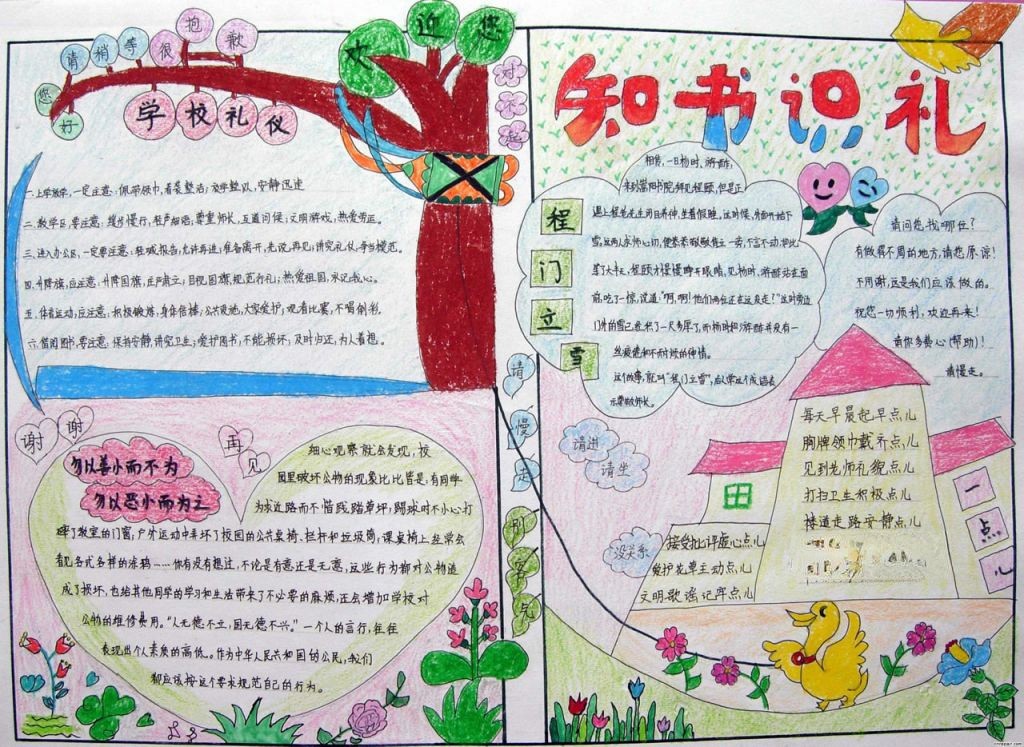 您好
请稍等
很抱歉
欢迎您
学校礼仪
对不起
知书识礼
一.上学放学,一定注意:佩带领巾,着装整洁;放学整队,安静迅速
二.教学区,要注意:缓步慢行,轻声细语;尊重师长,互道问候;文明游戏;热爱劳正。
三.进入办公区,一定要注意:轻喊报告,允许再进;准备离开,先说再见;讲究礼仪,争当模范。
四.升降旗,应注意:升降国旗,庄严肃立;目视国旗,规范行礼;热爱祖国,永记我心。
五.体育运动,应注意:积极锻炼,身体倍棒;公共设施,大家爱护;观看比赛,不喝倒彩。
六.借阅图书,要注意:保持安静,讲究卫生;爱护图书,不能损坏;及时归还,为人着想。
程门立雪
相传,一日杨时、游酢,
来到嵩阳书院拜见程颐,但是正
遇上程老先生闭目养神,坐着假睡,这时候,外面开始下
雪,这两人求师心切,便恭恭敬敬侍立一旁,不言不动,如此
等了大半天,程颐才慢慢睁开眼睛,见杨时、游酢站在面
前,吃了一惊,说道:“啊,啊!他们两位还在这儿走?”这时旁边
门外的雪已经积了一尺多厚了,而杨时和游酢并没有一
丝疲倦和不耐烦的神情。
这个故事,就叫“程门立雪”,后人常这个成语表
示尊敬师长。
请问您找哪位?
有做得不周的地方,请您原谅!
不用谢,这是我们应该做的。
祝您一切顺利,欢迎再来!
请你多费心(帮助)!
请慢走。
请慢走
别客气
请进
请坐
没关系
每天早晨起早点儿
胸牌领巾戴齐点儿
见到老师礼貌点儿
打扫卫生积极点儿
楼道走路安静点儿
接受批评虚心点儿
爱护花草主动点儿
文明歌谣记牢点儿
一点儿
谢谢
再见
勿以善小而不为
勿以恶小而为之
细心观察就会发现,校
园里破坏公物的现象比比皆是:有同学
为求近路而不惜践踏草坪;踢球时不小心打
碎了教室的门窗;户外运动中弄坏了校园的公共桌椅、栏杆和垃圾筒;课桌椅上经常会
看见各式各样的涂鸦……你有没有想过,不论是有意还是无意,这些行为都对公物造
成了损坏,也给其他同学的学习和生活带来了不必要的麻烦,还会增加学校对
公物的维修费用。“人无德不立,国无德不兴。”一个人的言行,往往
表现出个人素质的高低。作为中华人民共和国的公民,我们
都应该按这个要求规范自己的行为。